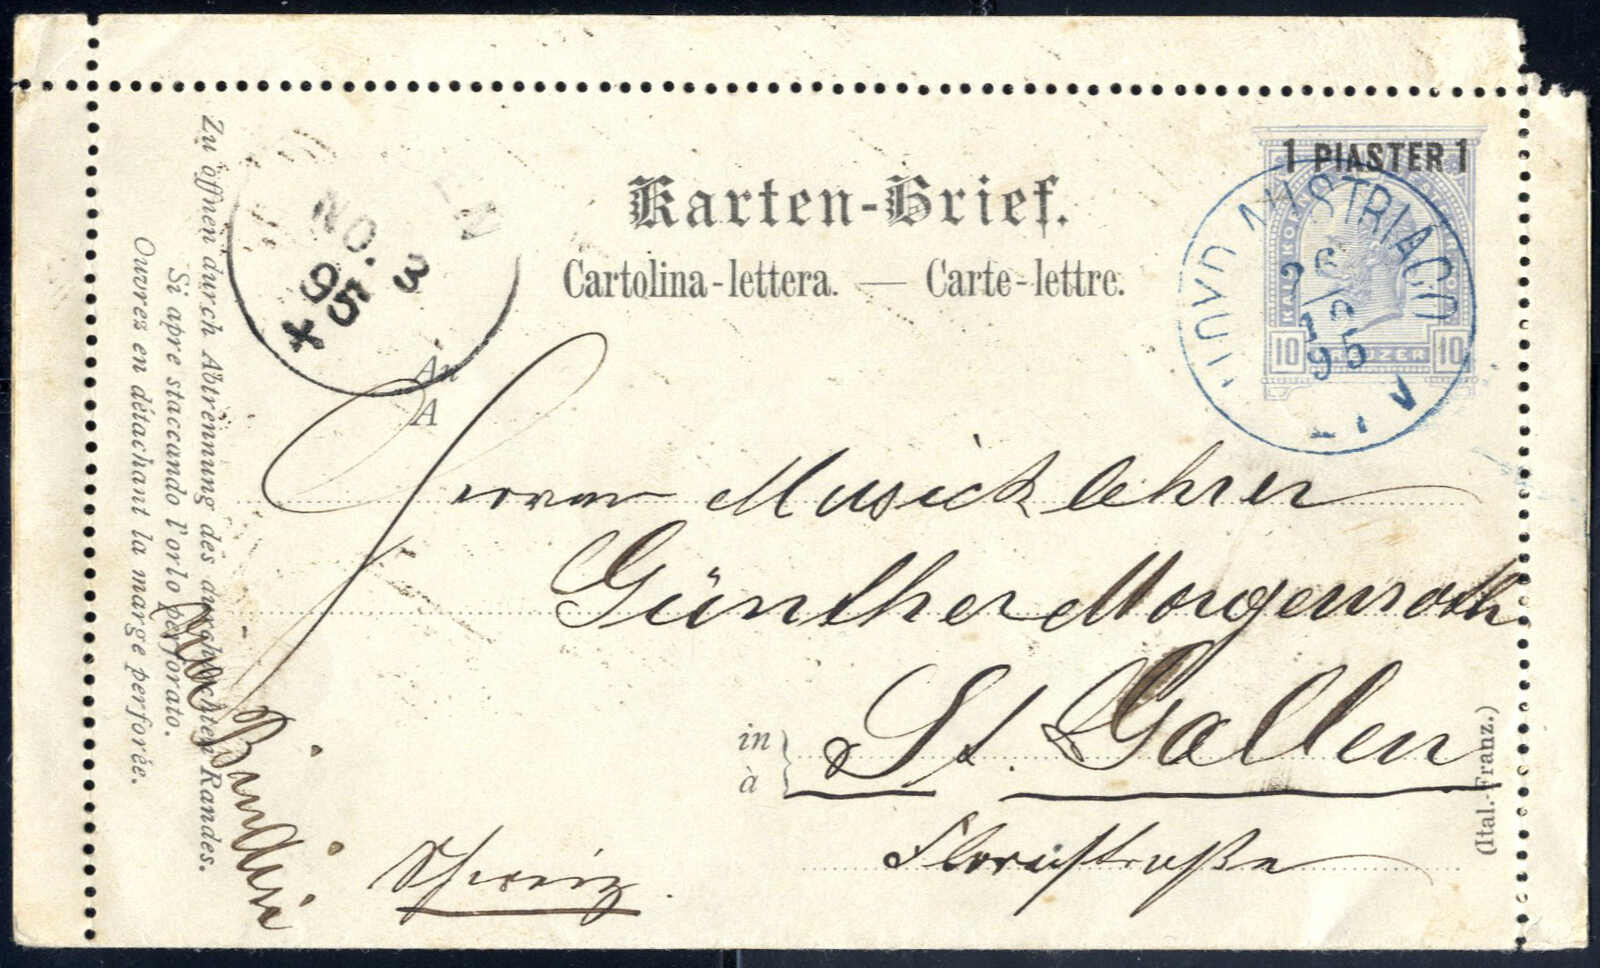 1 PIASTER 1
10 KREUZER 10
LLOYD AUSTRIACO
26/10
95
NO. 3
95
Karten-Brief.
Cartolina-lettera. — Carte-lettre.
An
A
Herrn Musicklehrer
Günther Morgenroth
in
à
St. Gallen
Florastraße
Schweiz.
Brindisi
Zu öffnen durch Abtrennung des durchlochten Randes.
Si apre staccando l'orlo perforato.
Ouvrez en détachant la marge perforée.
(Ital.-Franz.)